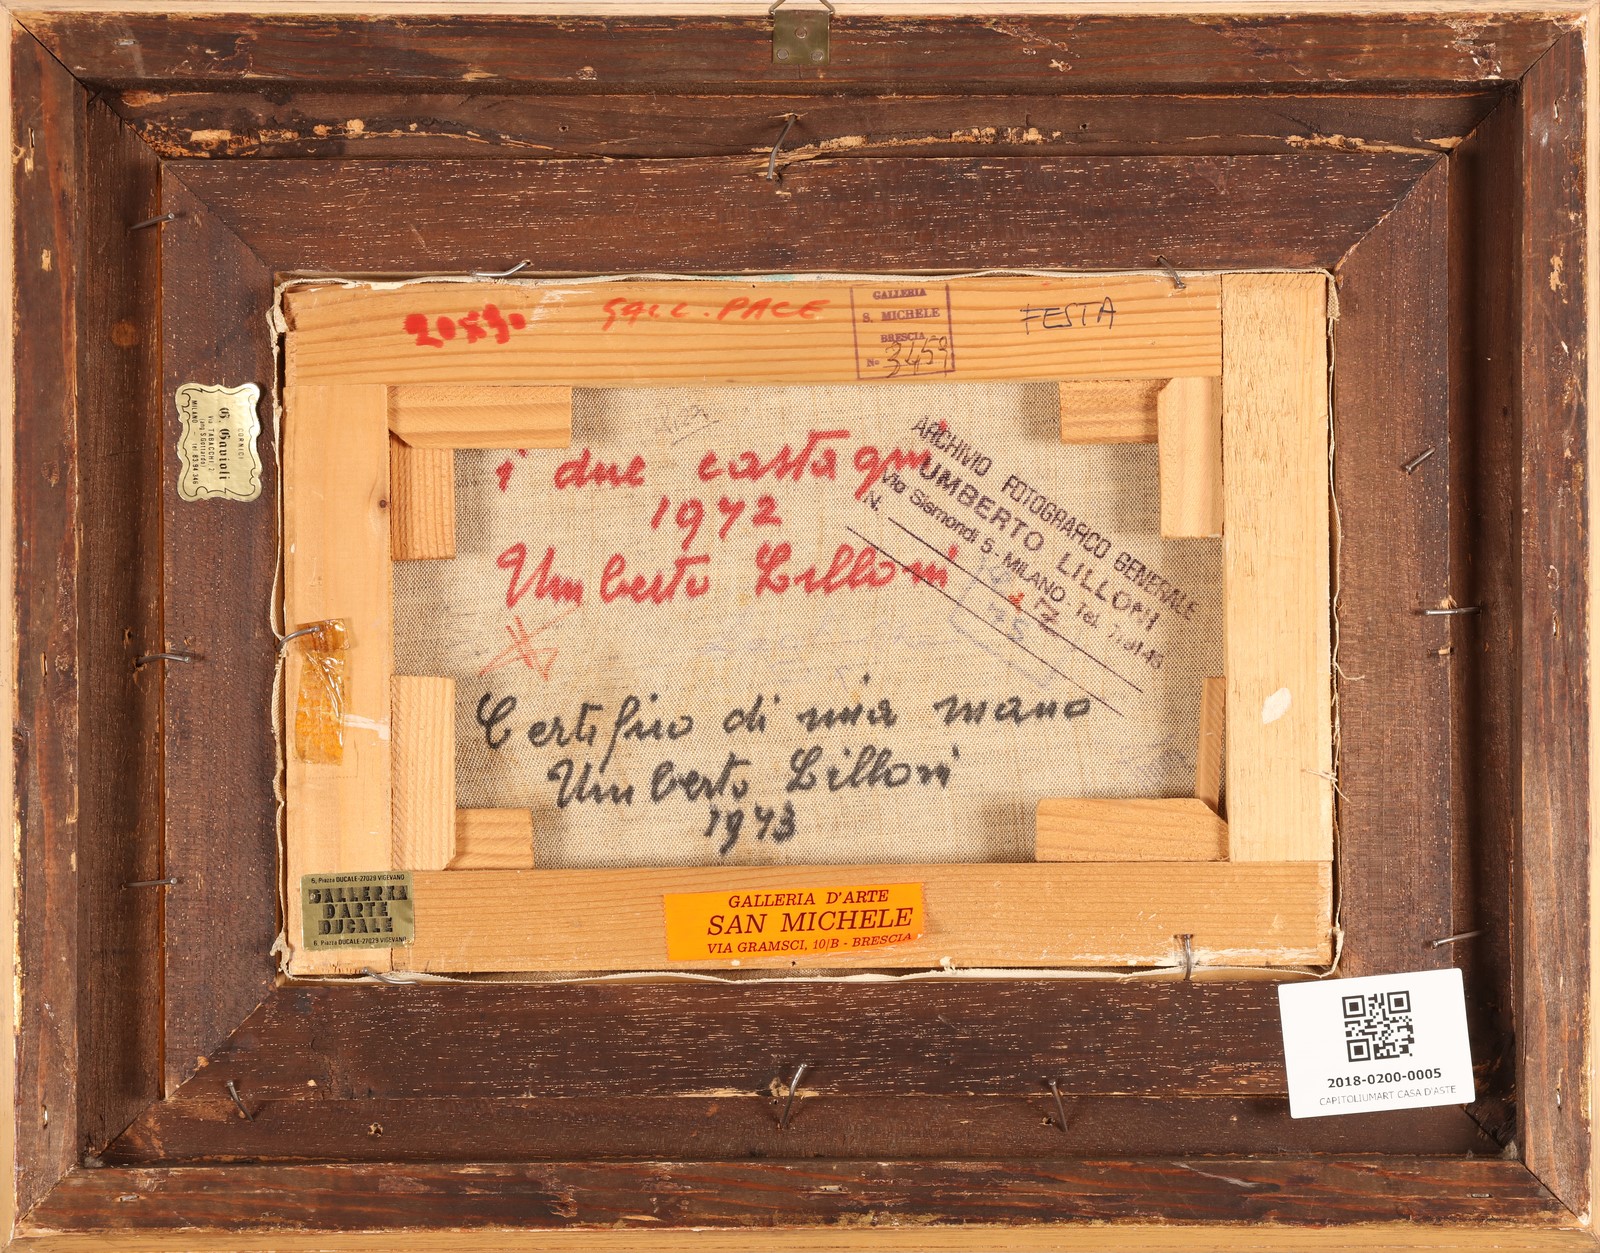 20x30
GALL. PACE
GALLERIA
S. MICHELE
BRESCIA
No 3459
FESTA
CORNICI
G. Gavioli
Via TABACCHI, 2
(ang. S. Gottardo)
MILANO - tel. 83.94.346
i due castagni
1972
Umberto Lilloni
ARCHIVIO FOTOGRAFICO GENERALE
UMBERTO LILLONI
Via Sismondi 5 - MILANO - Tel.
N.
Certifico di mia mano
Umberto Lilloni
1973
6, Piazza DUCALE-27029 VIGEVANO
GALLERIA
D'ARTE
DUCALE
6, Piazza DUCALE-27029 VIGEVANO
GALLERIA D'ARTE
SAN MICHELE
VIA GRAMSCI, 10/B - BRESCIA
2018-0200-0005
CAPITOLIUMART CASA D'ASTE